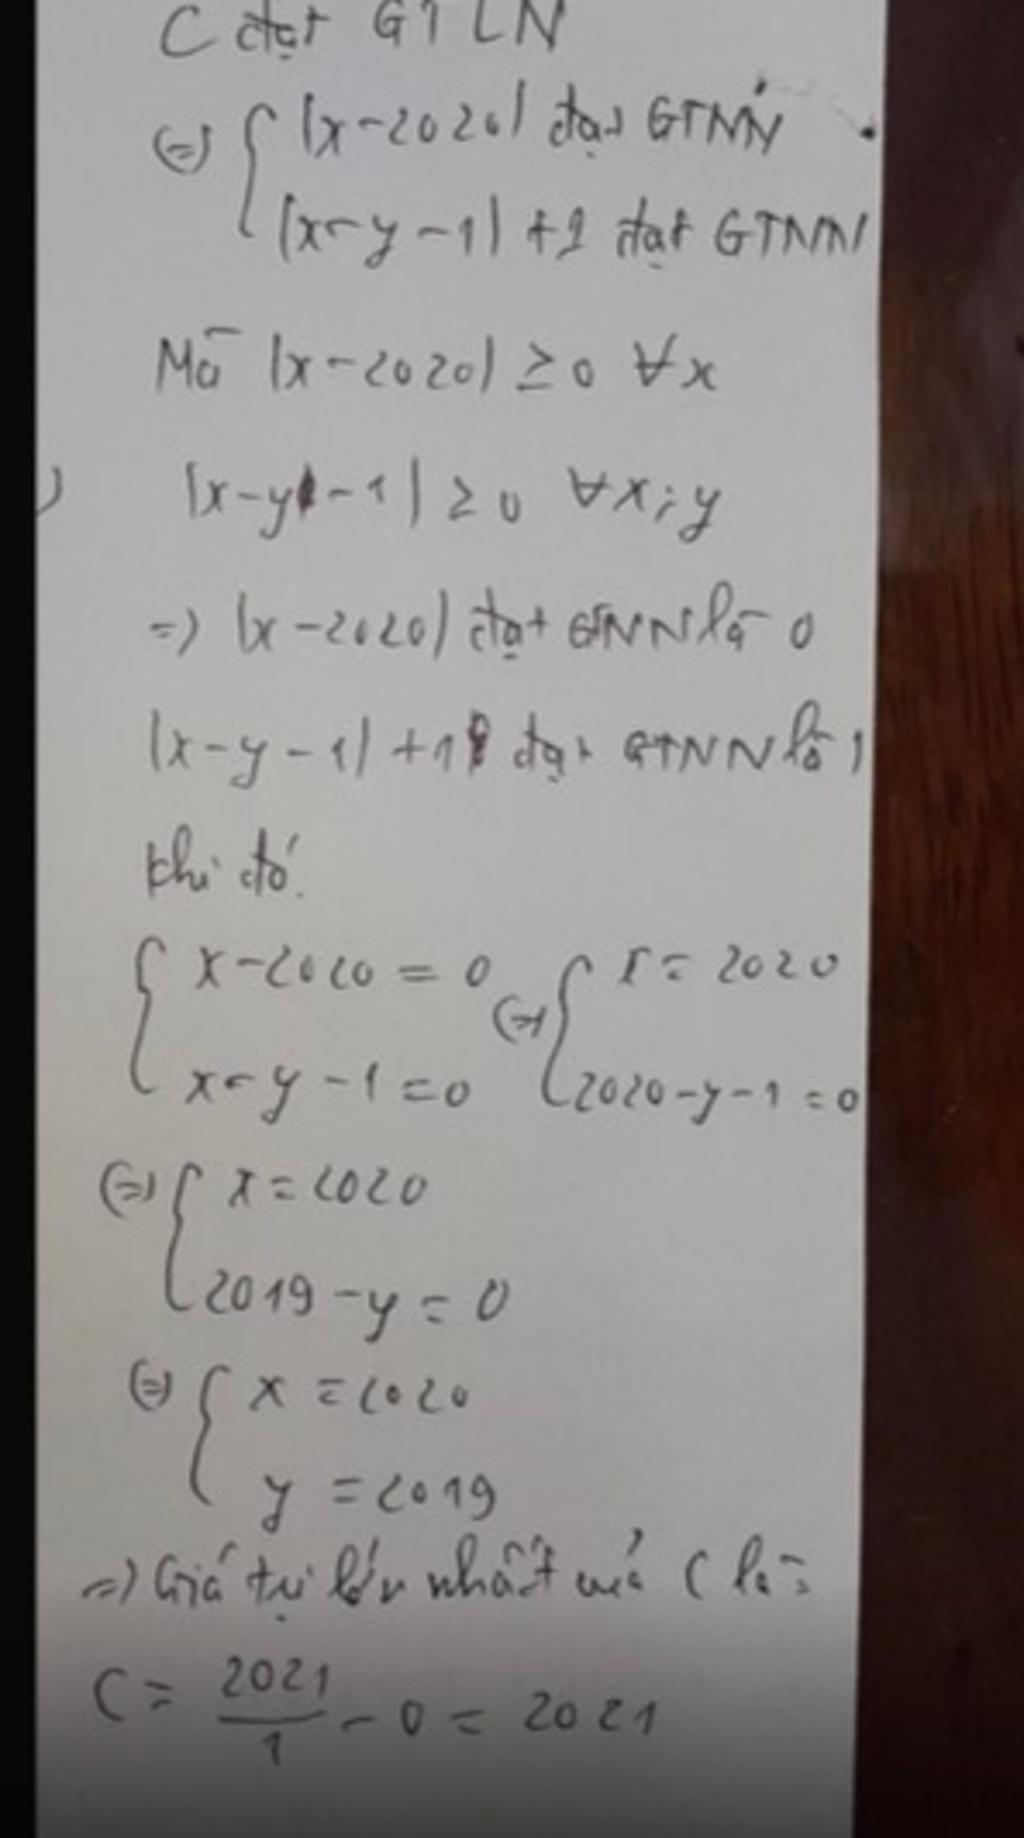 C đạt GTLN
(=) { |x-2020| đạt GTNN
|x-y-1| +1 đạt GTNN
Mà |x-2020| ≥ 0 ∀x
|x-y-1| ≥ 0 ∀x;y
=) |x-2020| đạt GTNN là 0
|x-y-1| +1 đạt GTNN là 1
khi đó.
{ x-2020 = 0 (=) { x = 2020
x-y-1 = 0 2020-y-1 = 0
(=) { x = 2020
2019-y = 0
(=) { x = 2020
y = 2019
=) Giá trị lớn nhất của C là:
C = 2021/1 - 0 = 2021